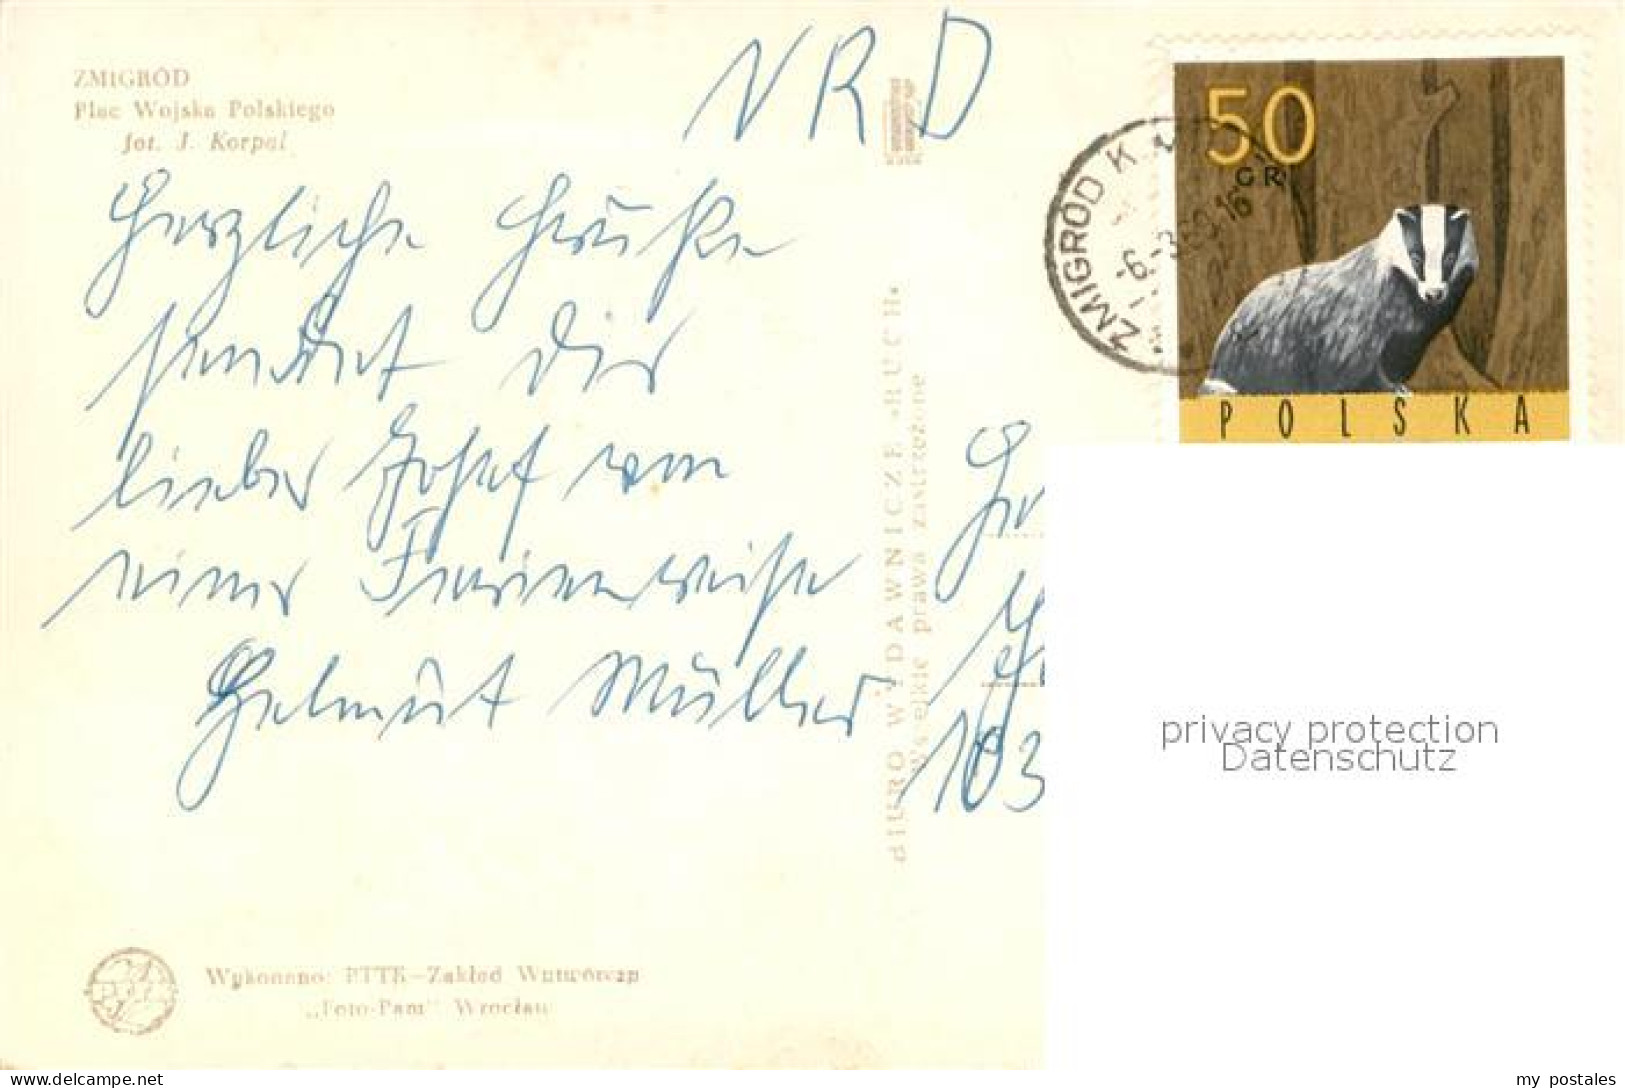 NRD
ZMIGRÓD
Plac Wojska Polskiego
fot. J. Korpal
Herzliche Grüße
sendet dir
lieber Josef von
einer Ferienreise
Helmut Müller
BIURO WYDAWNICZE «RUCH»
Wszelkie prawa zastrzeżone
50
GR
POLSKA
ŻMIGRÓD K.
-6.-3.69.16
103
privacy protection
Datenschutz
Wykonano: PTTK-Zakład Wytwórczy
„Foto-Pam" Wrocław
delcampe.net
my_postales